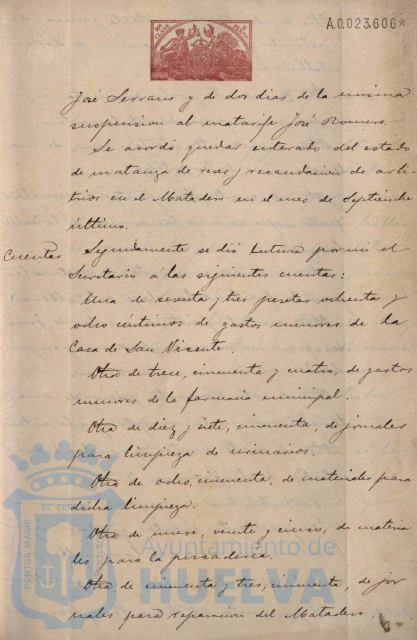 A.0.023.606*
José Serrano y de dos dias de la misma
suspension al matarife José Romero.
Se acordó quedar enterado del estado
de matanza de reses y recaudacion de arbi-
trios en el Matadero en el mes de Septiembre
último.
Cuentas Seguidamente se dió lectura por mi el
Secretario á las siguientes cuentas:
Una de sesenta y tres pesetas ochenta y
ocho céntimos de gastos menores de la
Casa de San Vicente.
Otra de trece, cincuenta y cuatro, de gastos
menores de la farmacia municipal.
Otra de diez y siete, cincuenta, de jornales
para limpieza de urinarios.
Otra de ocho, cincuenta, de materiales para
dicha limpieza.
Otra de nueve, veinte y cinco, de materia
les para la pescaderia.
Otra de cincuenta y tres, cincuenta, de jor
nales para reparacion del Matadero.
Ayuntamiento de
HUELVA